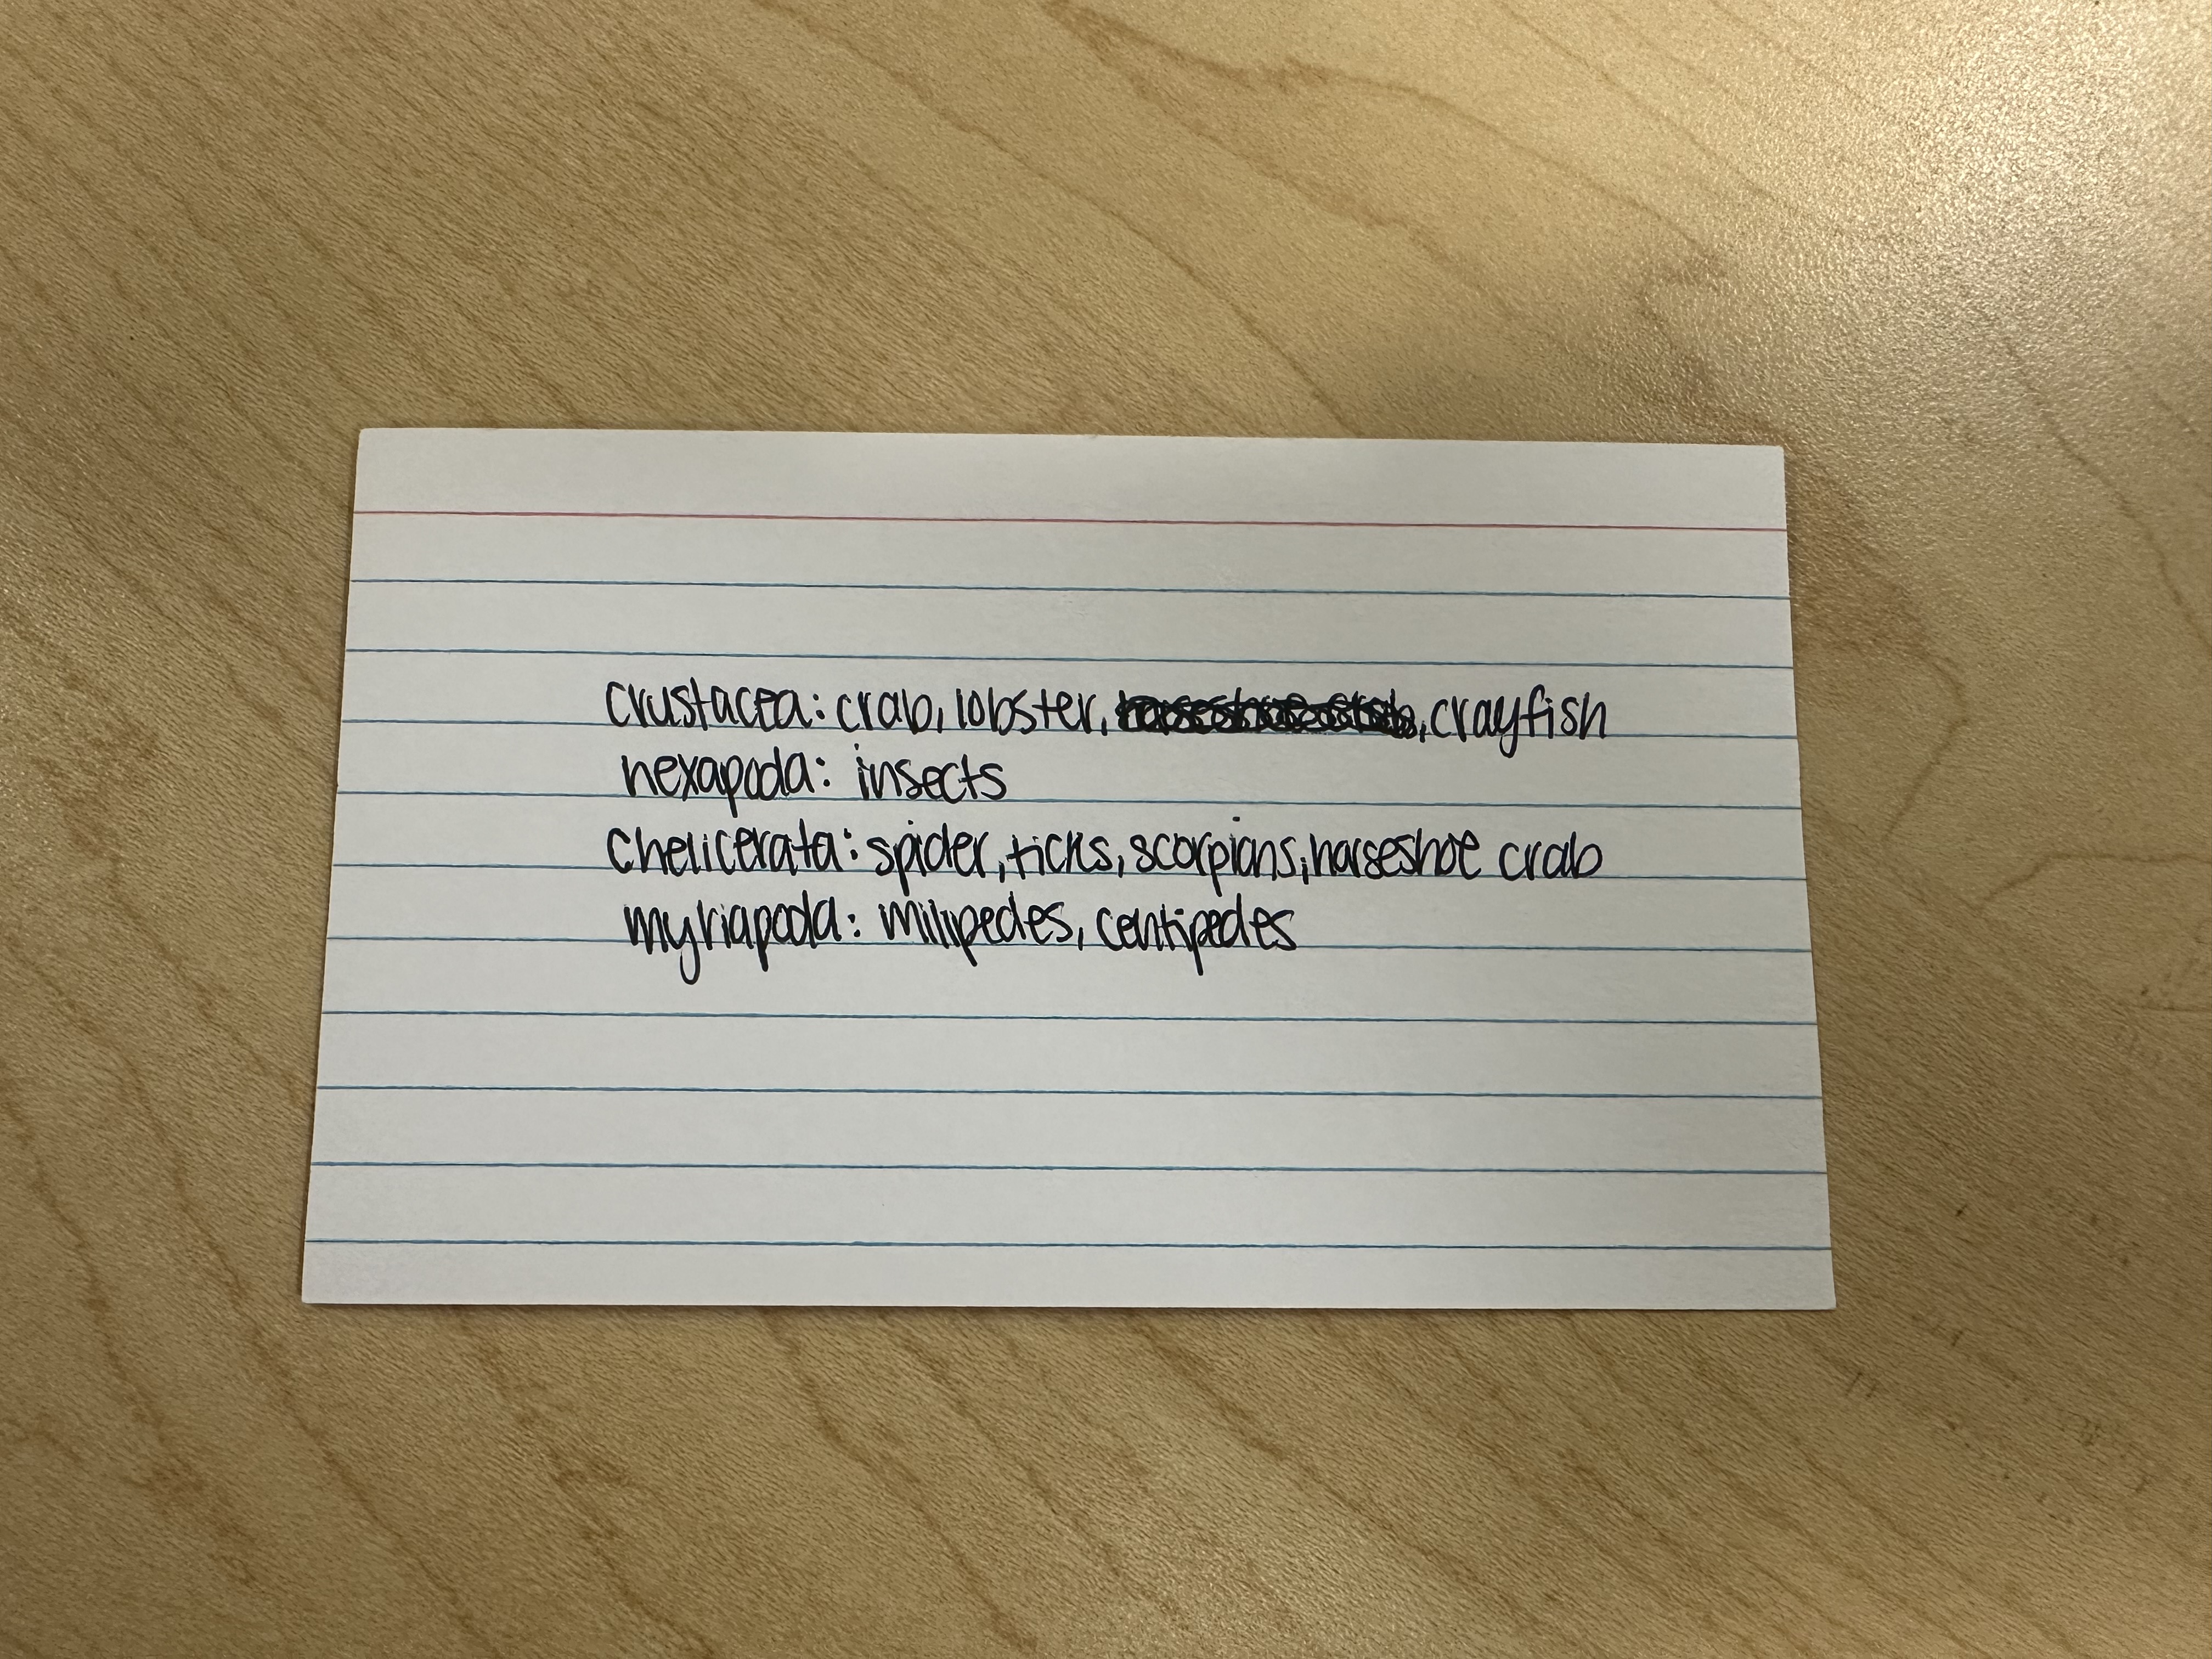 crustacea: crab, lobster, horseshoe crab, crayfish
hexapoda: insects
chelicerata: spider, ticks, scorpions, horseshoe crab
myriapoda: millipedes, centipedes